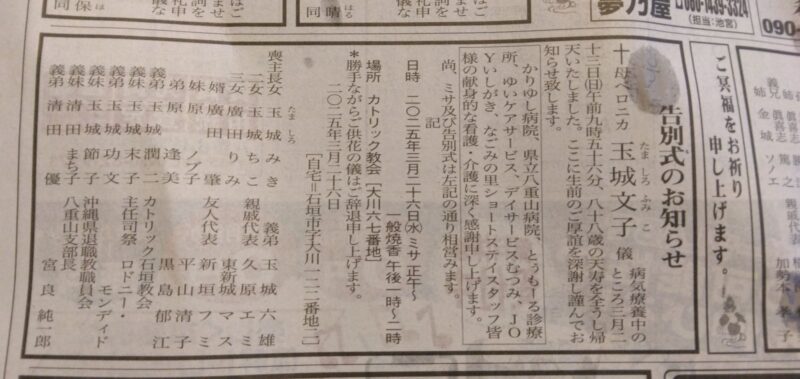 告別式のお知らせ
十 母ベロニカ 玉城文子 儀 病気療養中の
たま しろ ふみ こ
ところ三月二
十三日(日)午前九時五十六分、八十八歳の天寿を全うし帰
天いたしました。ここに生前のご厚誼を深謝し謹んでお
知らせ致します。
かりゆし病院、県立八重山病院、とぅもーる診療
所、ゆいケアサービス、デイサービスむつみ、JO
Yいしがき、なごみの里ショートステイスタッフ皆
様の献身的な看護・介護に深く感謝申し上げます。
尚、ミサ及び告別式は左記の通り相営みます。
記
日時 二〇二五年三月二十六日(水)ミサ 正午~
一般焼香 午後一時~二時
場所 カトリック教会[大川六七番地]
*勝手ながらご供花の儀はご辞退申し上げます。
二〇二五年三月二十六日
[自宅=石垣市字大川一二二番地二]
喪主長女 玉城 ちあき
たま しろ
二女 玉城 みこ
三女 廣田 りみ
婿 廣田 肇
妹 原 ノブ
弟 原 逢美
義弟 玉城 潤二
義妹 玉城 末子
義弟 玉城 功
義妹 玉城 節文
義妹 清田 まち子
義弟 清田 優
義弟 玉城 六雄
親戚代表 久原 エミ
東新城 マス
友人代表 新垣 フミ
平山 清子
黒島 郁江
カトリック石垣教会
主任司祭 ロドニー・
モンディド
沖縄県退職教職員会
八重山支部長 宮良 純一郎
ご冥福をお祈り
申し上げます。
夢乃屋
080-1439-3324
(担当:池宮)
090-